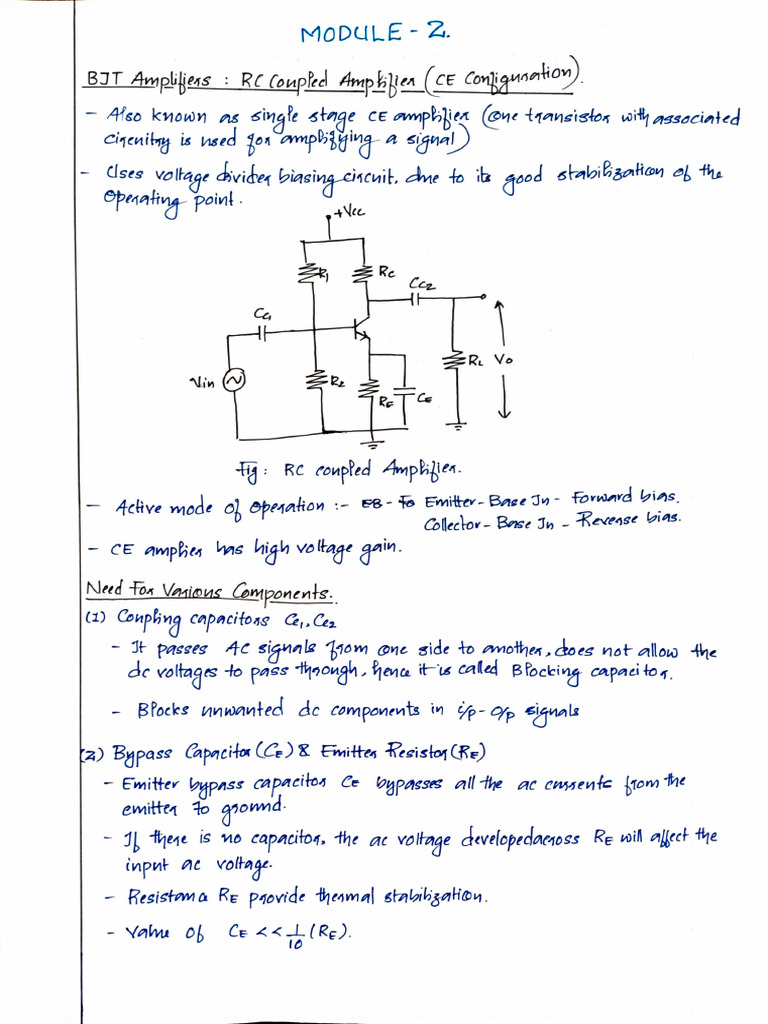 MODULE - 2.
BJT Amplifiers : RC Coupled Amplifier (CE Configuration).
- Also known as single stage CE amplifier (one transistor with associated
circuitry is used for amplifying a signal)
- Uses voltage divider biasing circuit, due to its good stabilization of the
operating point.
+Vcc
R1
RC
CC2
CC1
Vin
R2
RE
CE
RL
Vo
Fig: RC coupled Amplifier.
- Active mode of operation :- Emitter-Base Jn - Forward bias.
Collector-Base Jn - Reverse bias.
- CE amplier has high voltage gain.
Need For Various Components.
(1) Coupling capacitors Cc1, Cc2
- It passes AC signals from one side to another, does not allow the
dc voltages to pass through, hence it is called Blocking capacitor.
- Blocks unwanted dc components in i/p - o/p signals
(2) Bypass Capacitor (CE) & Emitter Resistor (RE)
- Emitter bypass capacitor CE bypasses all the ac currents from the
emitter to ground.
- If there is no capacitor, the ac voltage developed across RE will affect the
input ac voltage.
- Resistance RE provide thermal stabilization.
- Value of CE << 1/10 (RE).